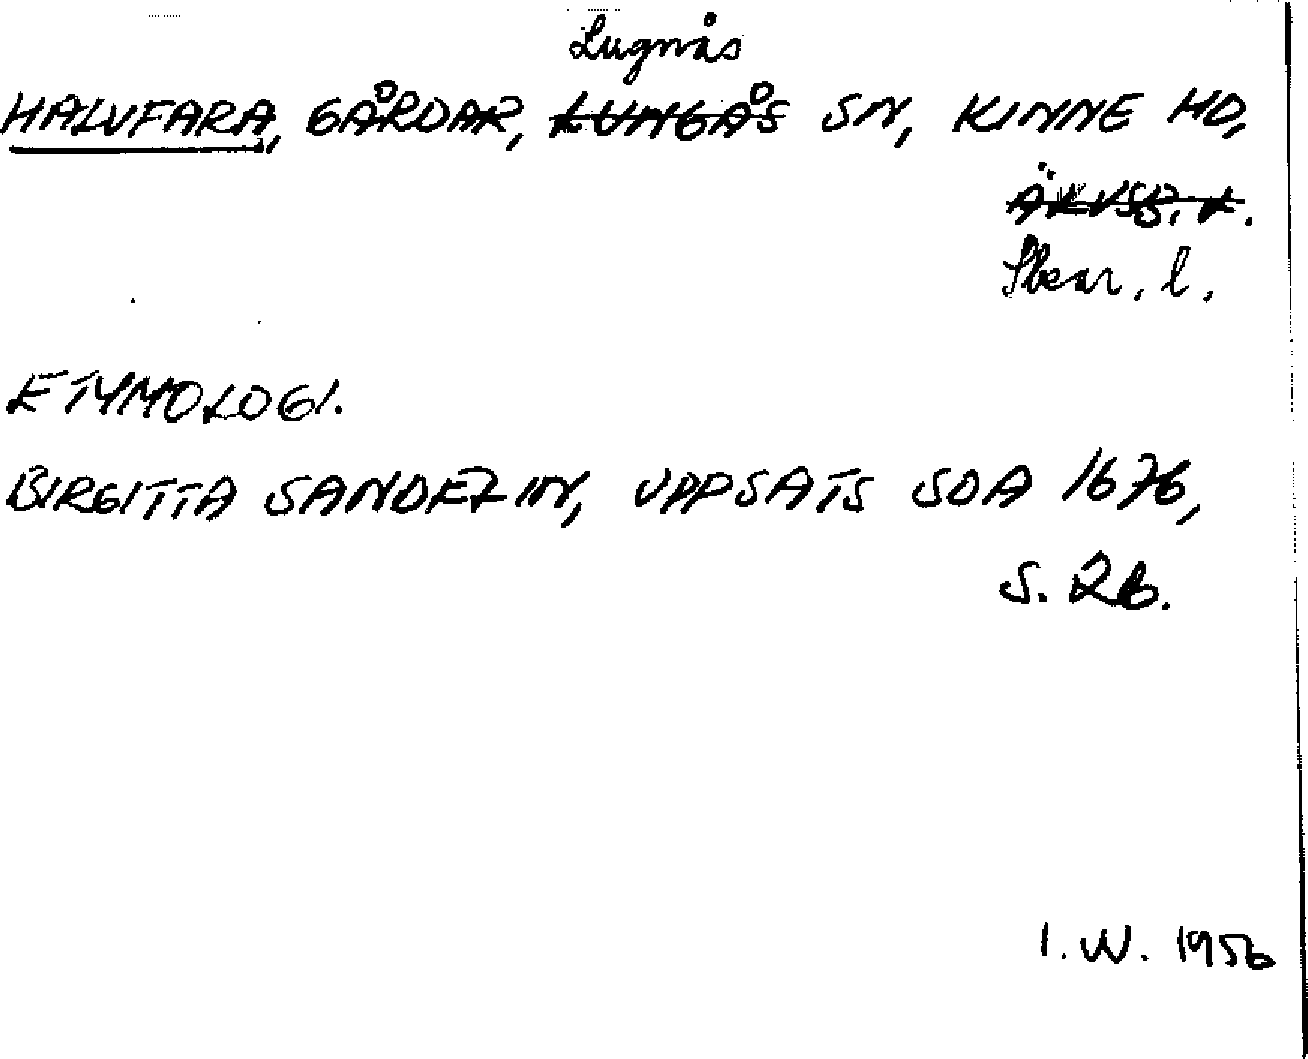 Lugnås
HALVFARA, GÅRDAR, LUNGÅS SN, KINNE HD,
ÄLVSB. L.
Skar. l.
ETYMOLOGI.
BIRGITTA SANDELIN, UPPSATS SOA 1676,
S. 26.
I. W. 1956